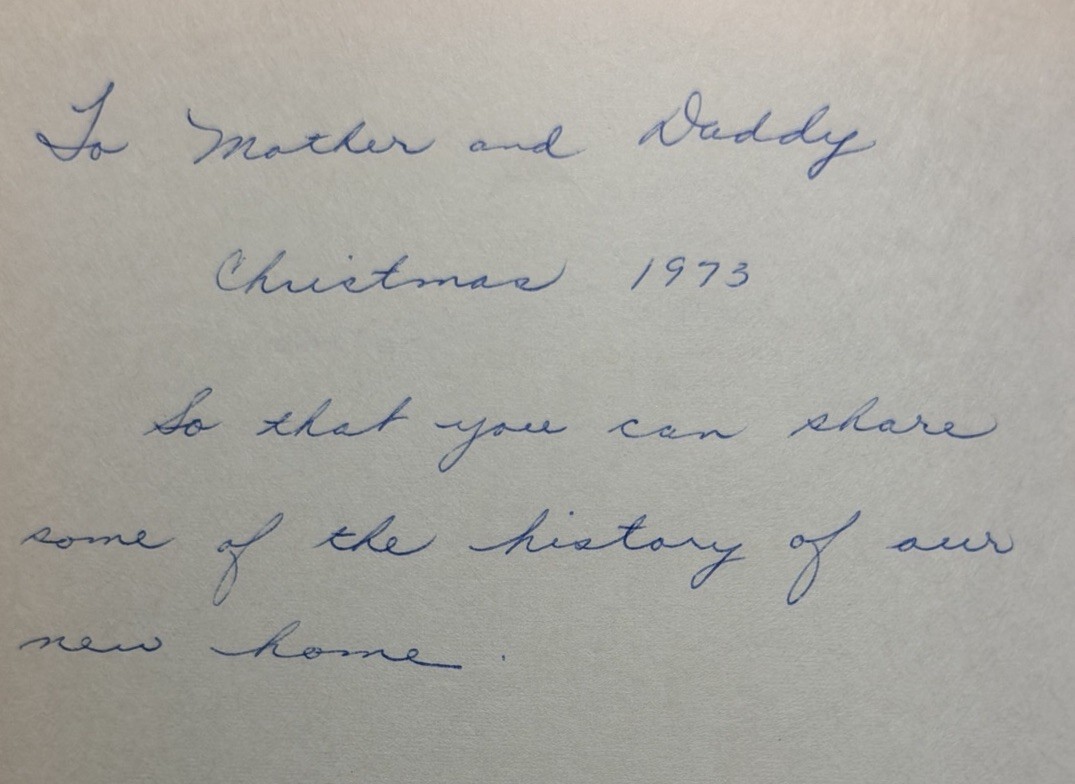 To Mother and Daddy
Christmas 1973
So that you can share
some of the history of our
new home.